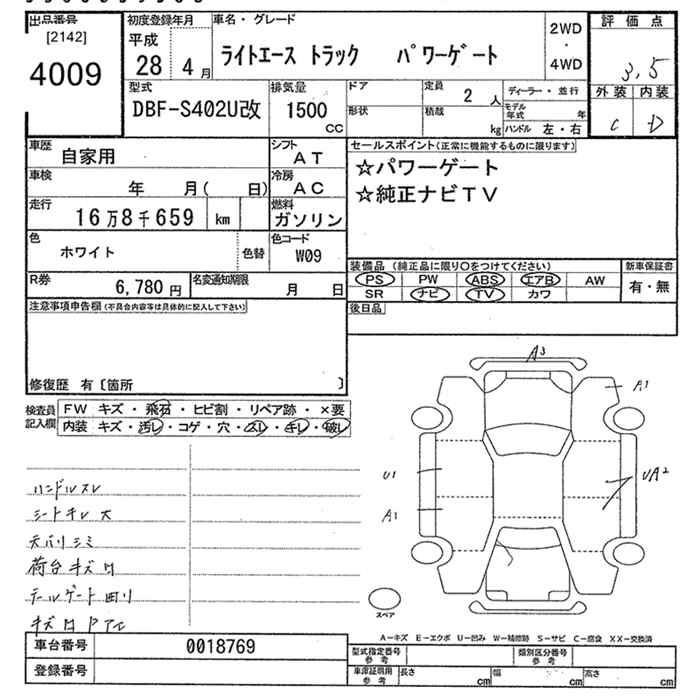 出品番号
[2142]
4009
初度登録年月
平成
28 4月
車名・グレード
ライトエース トラック パワーゲート
2WD
・
4WD
評価点
3.5
外装 内装
C D
型式
DBF-S402U改
排気量
1500
CC
ドア
形状
定員
2人
積載
kg
ディーラー・並行
モデル年式 年
ハンドル 左・右
車歴
自家用
シフト
AT
車検
年 月( 日)
冷房
AC
走行
16万8千659 km
燃料
ガソリン
色
ホワイト
色替
色コード
W09
R券
6,780円
名変通知期限
月 日
セールスポイント(正常に機能するものに限ります)
☆パワーゲート
☆純正ナビTV
装備品(純正品に限り○をつけてください)
新車保証書
PS PW ABS エアB AW
SR ナビ TV カワ
有・無
後日品
注意事項申告欄(不具合内容等は具体的に記入して下さい)
修復歴 有〔箇所 〕
検査員記入欄
FW キズ・飛石・ヒビ割・リペア跡・×要
内装 キズ・汚レ・コゲ・穴・スレ・キレ・破レ
ハンドルスレ
シートキレ大
天バリシミ
荷台キズ凹
テールゲート凹リ
A3
A1
U1
A1
UA2
スペア
A−キズ E−エクボ U−凹み W−補修跡 S−サビ C−腐食 XX−交換済
車台番号
0018769
登録番号
型式指定番号
参考
類別区分番号
参考
車庫証明用
参考
長さ cm
幅 cm
高さ cm